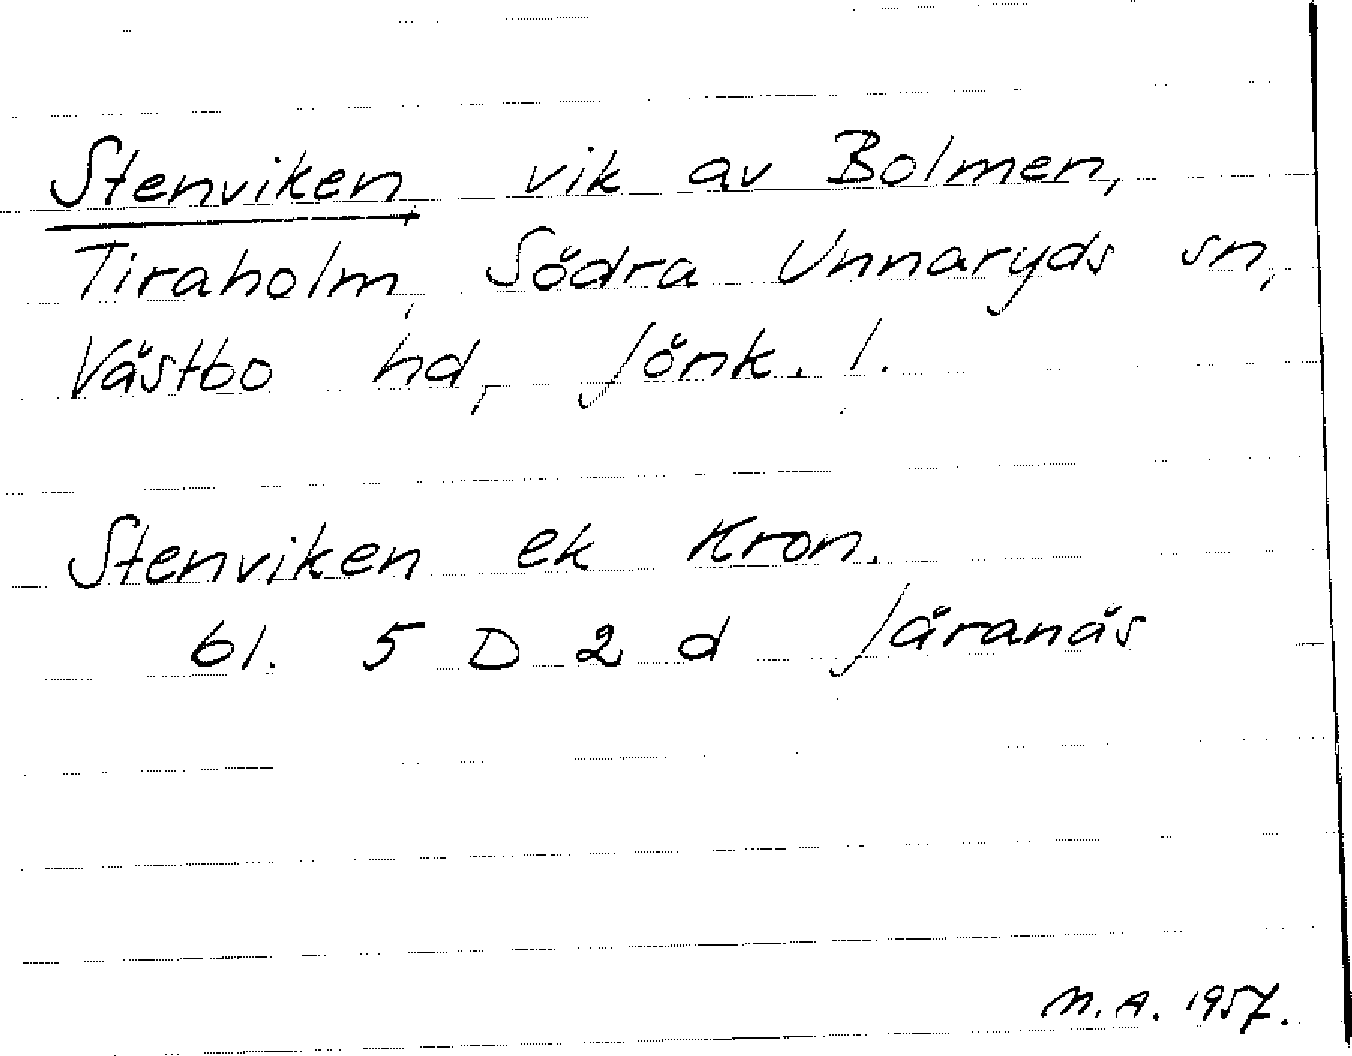 Stenviken, vik av Bolmen,
Tiraholm, Södra Unnaryds sn,
Västbo hd, Jönk. l.
Stenviken ek Kron.
bl. 5 D 2 d Järanäs
M.A. 1957.